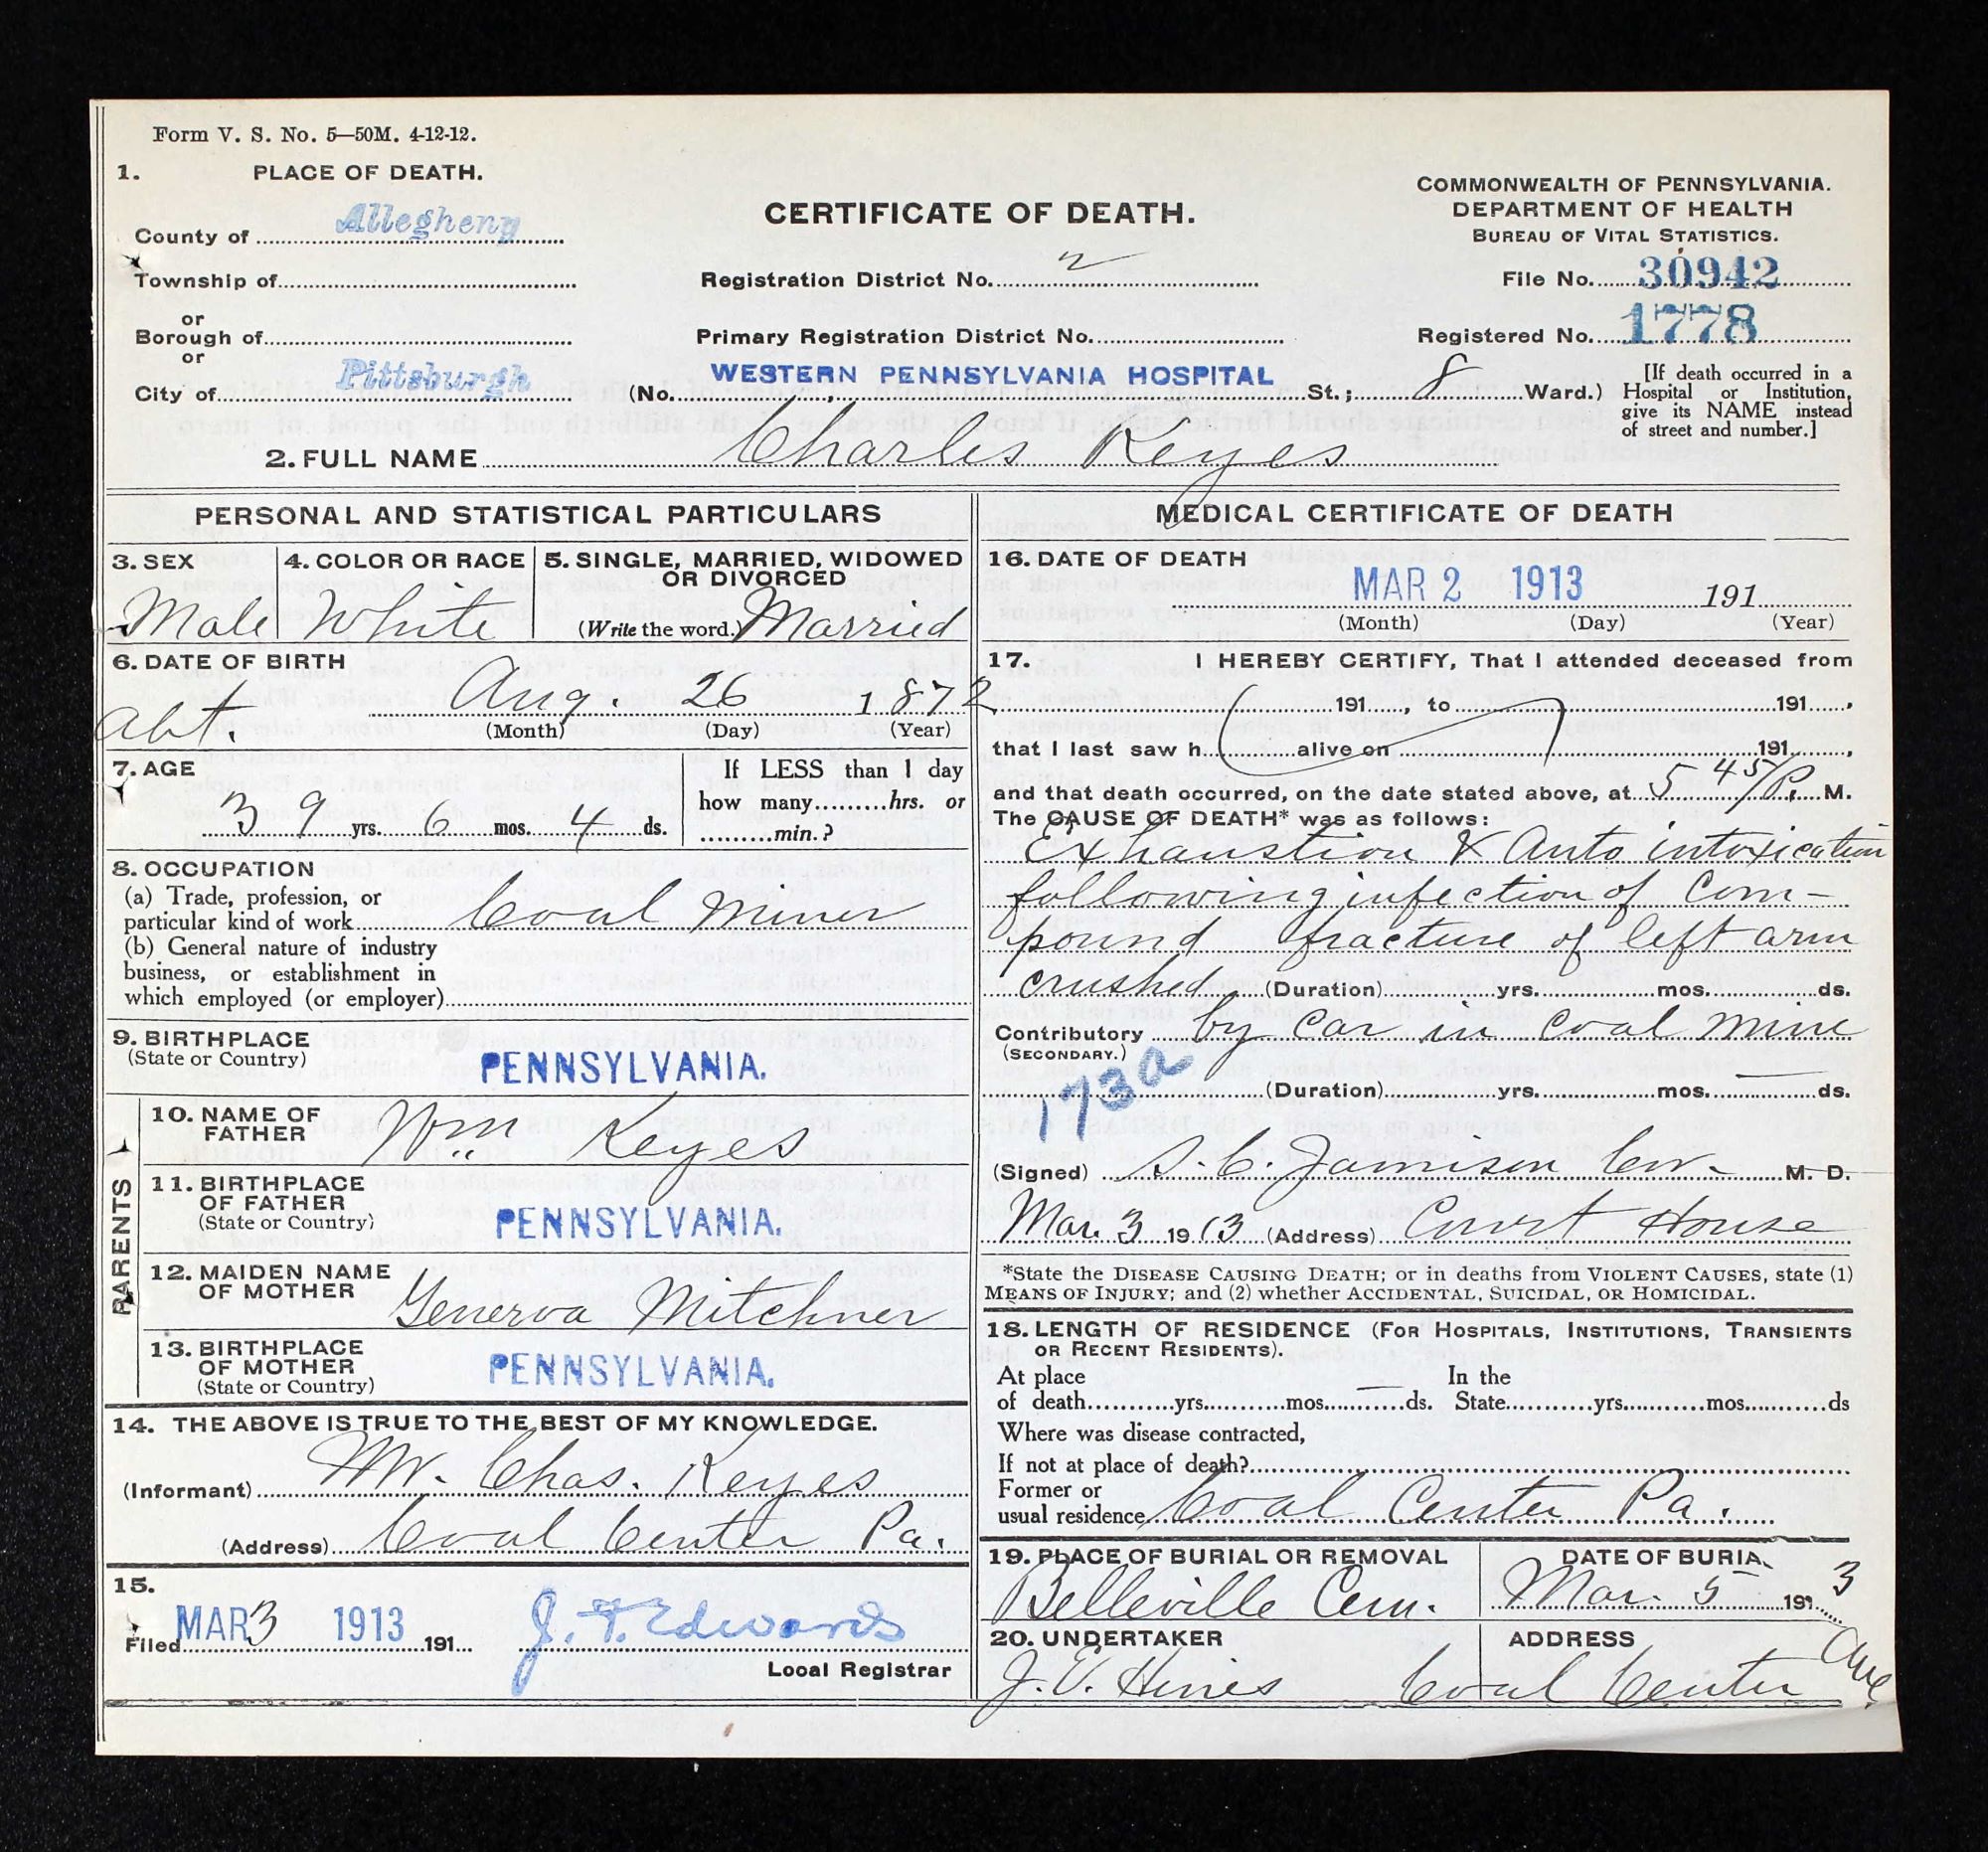 Form V. S. No. 5—50M. 4-12-12.
1. PLACE OF DEATH.
County of Allegheny
Township of
or
Borough of
or
City of Pittsburgh
CERTIFICATE OF DEATH.
Registration District No. 2
Primary Registration District No.
(No. WESTERN PENNSYLVANIA HOSPITAL St.; 8 Ward.)
COMMONWEALTH OF PENNSYLVANIA.
DEPARTMENT OF HEALTH
BUREAU OF VITAL STATISTICS.
File No. 30942
Registered No. 1778
[If death occurred in a
Hospital or Institution,
give its NAME instead
of street and number.]
2. FULL NAME Charles Keyes
PERSONAL AND STATISTICAL PARTICULARS
3. SEX
Male
4. COLOR OR RACE
White
5. SINGLE, MARRIED, WIDOWED
OR DIVORCED
(Write the word.) Married
6. DATE OF BIRTH
abt. Aug. 26 1872
(Month) (Day) (Year)
7. AGE
39 yrs. 6 mos. 4 ds.
If LESS than 1 day
how many hrs. or
min.?
8. OCCUPATION
(a) Trade, profession, or
particular kind of work Coal Miner
(b) General nature of industry
business, or establishment in
which employed (or employer)
9. BIRTHPLACE
(State or Country)
PENNSYLVANIA.
PARENTS
10. NAME OF
FATHER
Wm Keyes
11. BIRTHPLACE
OF FATHER
(State or Country)
PENNSYLVANIA.
12. MAIDEN NAME
OF MOTHER
Generva Mitchner
13. BIRTHPLACE
OF MOTHER
(State or Country)
PENNSYLVANIA.
14. THE ABOVE IS TRUE TO THE BEST OF MY KNOWLEDGE.
(Informant) Mr. Chas. Keyes
(Address) Coal Center Pa.
15.
Filed MAR 3 1913 191
J. F. Edwards
Local Registrar
MEDICAL CERTIFICATE OF DEATH
16. DATE OF DEATH
MAR 2 1913 191
(Month) (Day) (Year)
17. I HEREBY CERTIFY, That I attended deceased from
191 , to 191 ,
that I last saw h alive on 191 ,
and that death occurred, on the date stated above, at 5 45/P. M.
The CAUSE OF DEATH* was as follows:
Exhaustion & Auto intoxication
following infection of Com-
pound fracture of left arm
crushed (Duration) yrs. mos. ds.
Contributory by car in coal mine
(SECONDARY.)
173a
(Duration) yrs. mos. ds.
(Signed) S. C. Jamison Cor. M. D.
Mar. 3 1913 (Address) Court House
*State the DISEASE CAUSING DEATH; or in deaths from VIOLENT CAUSES, state (1)
MEANS OF INJURY; and (2) whether ACCIDENTAL, SUICIDAL, OR HOMICIDAL.
18. LENGTH OF RESIDENCE (FOR HOSPITALS, INSTITUTIONS, TRANSIENTS
OR RECENT RESIDENTS).
At place In the
of death yrs. mos. ds. State yrs. mos. ds
Where was disease contracted,
If not at place of death?
Former or
usual residence Coal Center Pa.
19. PLACE OF BURIAL OR REMOVAL
Belleville Cem.
DATE OF BURIAL
Mar. 5 1913
20. UNDERTAKER
J. E. Hines
ADDRESS
Coal Center